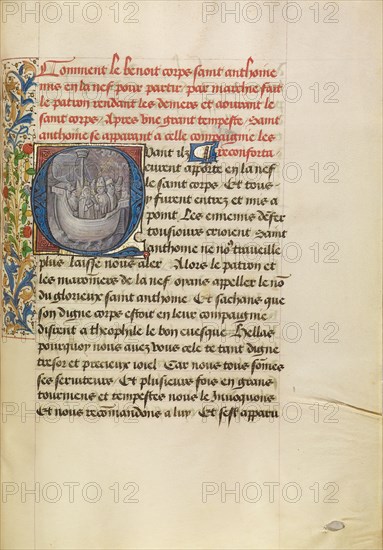 Comment le benoit corps saint anthoine
mis en la nef pour partir par marchie fait
le patron rendant les deniers et aourant le
saint corps. Apres vne grant tempeste Saint
anthoine se apparant a celle compaignie les
reconforta
Quant ilz
eurent apporte en la nef
le saint corps. Et tous
y furent entrez et mis a
point. Les ennemis denfer
tousiours crioient Saint
anthoine ne nos trauaille
plus laisse nous aler. Alors le patron et
les maronniers de la nef oyans appeller le nom
du glorieux saint anthoine Et sachans que
son digne corps estoit en leur compaignie
disrent a theophile le bon euesque. Hellas
pourquoy nous auez vous cele tant digne
tresor et precieux ioiel. Car nous tous sommes
ses seruiteurs Et plusieurs fois en grans
tourmens et tempestes nous le Inuoquons
Et nous recommandons a luy. Et sest apparu
PHOTO12
PHOTO12
PHOTO12
PHOTO12
PHOTO12
PHOTO12